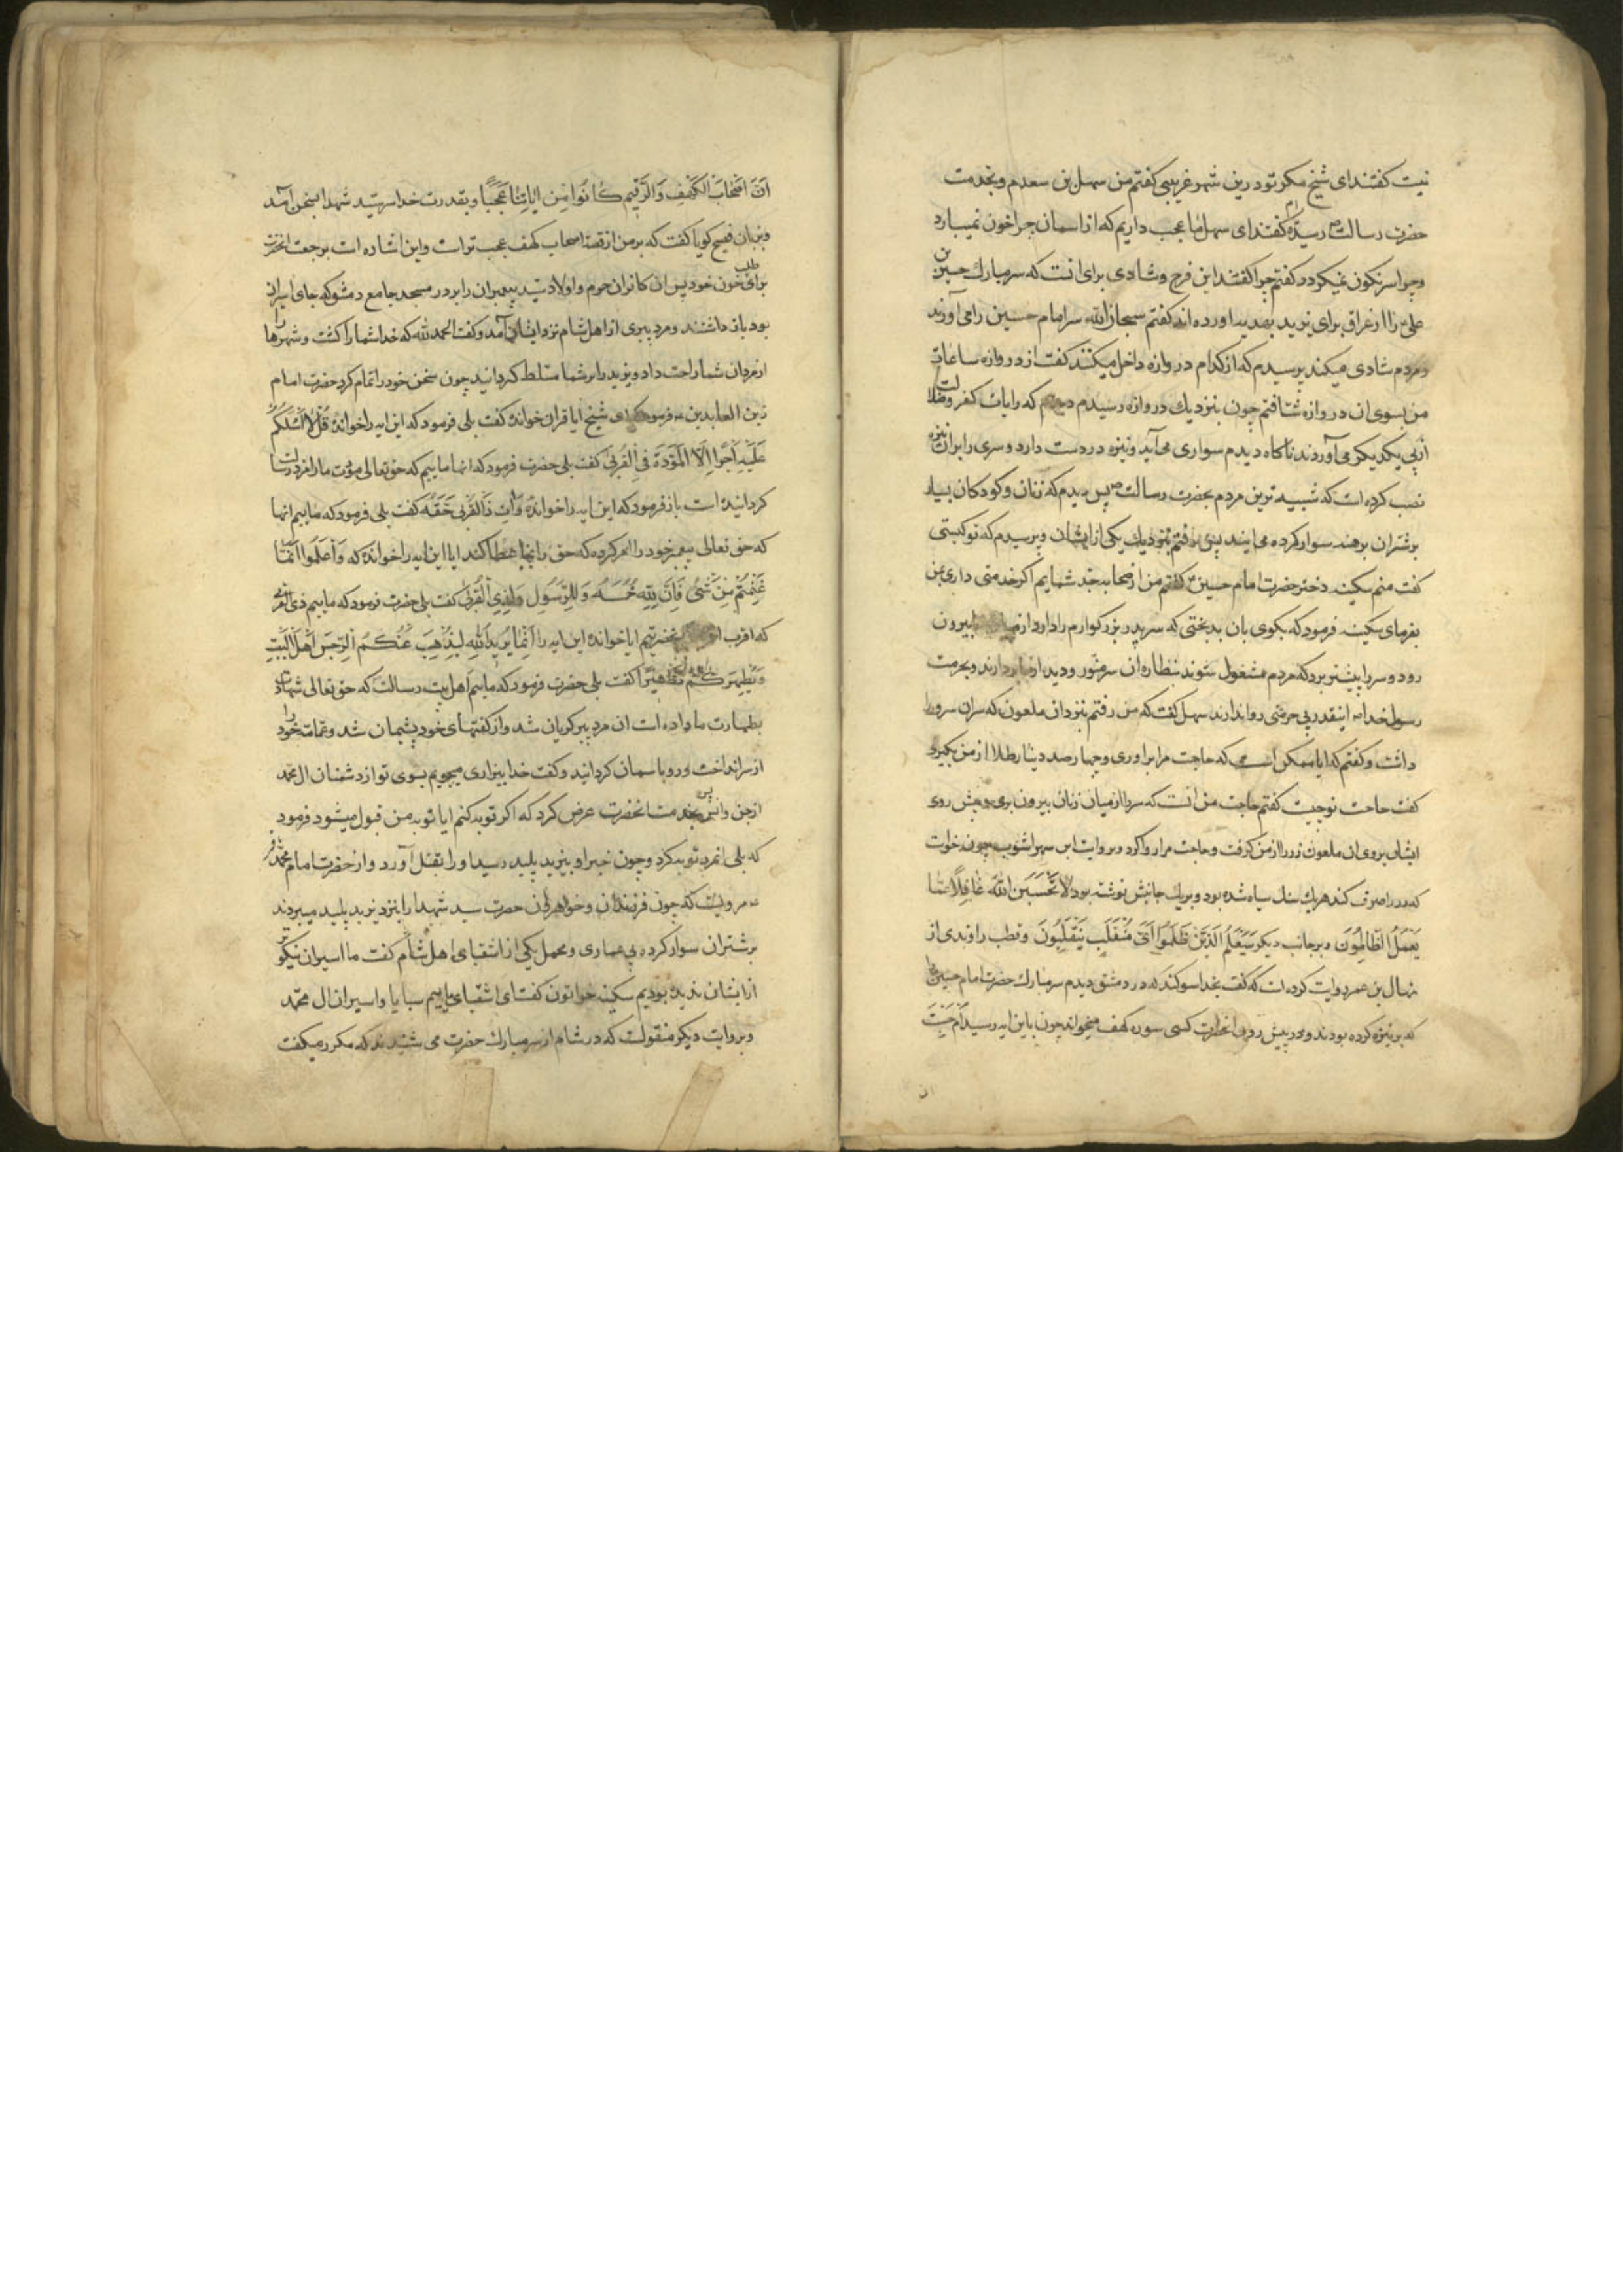 نیست کفتند ای شیخ مکر تو درین شهر غریبی کفتم من سهل بن سعدم و بخدمت
حضرت رسالت رسیده‌ام کفتند ای سهل ما عجب داریم که از اسمان چرا خون نمیبارد
و چرا سرنکون نمیکردد کفتم چرا کفتند این فرح و شادی برای انست که سر مبارک حسین بن
علی را از عراق برای یزید بهدیه اورده اند کفتم سبحان الله سر امام حسین را می آورند
و مردم شادی میکنند پرسیدم که از کدام دروازه داخل میکنند کفت از دروازه ساعات
من بسوی ان دروازه شتافتم چون بنزدیک دروازه رسیدم دیدم که رایات کفر و ضلالت
از پی یکدیکر می آوردند ناکاه دیدم سواری می آید و نیزه در دست دارد و سری را بران نیزه
نصب کرده است که شبیه ترین مردم بحضرت رسالت ص پس دیدم که زنان و کودکان بسیار
بر شتران برهنه سوار کرده می ایند پس رفتم بنزدیک یکی از ایشان و پرسیدم که تو کیستی
کفت منم سکینه دختر حضرت امام حسین کفتم من از صحابه جد شمایم اکر خدمتی داری بمن
بفرمای سکینه فرمود که بکوی بان بدبختی که سر پدر بزرکوارم را دارد از میان ما بیرون
رود و سر را پیشتر برد که مردم مشغول شوند بنظاره ان سر منور و دیده از ما بردارند و بحرمت
رسول خدا ص اینقدر بی حرمتی روا ندارند سهل کفت که من رفتم نزد ان ملعون که سر ان سرور را
داشت و کفتم که ایا ممکن است که حاجت مرا براوری و چهار صد دینار طلا از من بکیری
کفت حاجت تو چیست کفتم حاجت من انست که سر را از میان زنان بیرون بری و پیش روی
ایشان بروی ان ملعون زر را از من کرفت و حاجت مرا روا کرد و بروایت ابن شهراشوب چون خواست
که زر را صرف کند هر یک سنک سیاه شده بود و بر یک جانبش نوشته بود لَا تَحْسَبَنَّ اللَّهَ غَافِلًا عَمَّا
یَعْمَلُ الظَّالِمُونَ و بر جانب دیکر سَیَعْلَمُ الَّذِینَ ظَلَمُوا اَیَّ مُنْقَلَبٍ یَنْقَلِبُونَ و قطب راوندی از
منهال بن عمر روایت کرده است که کفت بخدا سوکند که در دمشق دیدم سر مبارک حضرت امام حسین را
که بر نیزه کرده بودند و در پیش روی انحضرت کسی سوره کهف میخواند چون باین ایه رسید اَمْ حَسِبْتَ
اَنَّ اَصْحَابَ الْکَهْفِ وَالرَّقِیمِ کَانُوا مِنْ ایَاتِنَا عَجَبًا و بقدرت خدا سر سید شهدا بسخن آمد
و بزبان فصیح کویا کفت که بر من از قصه اصحاب کهف عجب تر است و این اشاره است برجعت انحضرت
برای طلب خون خود پس ان کافران حرم و اولاد سید پیغمبران را بر در مسجد جامع دمشق که جای اسیران
بود باز داشتند و مرد پیری از اهل شام نزد ایشان آمد و کفت الحمد لله که خدا شما را کشت و شهرها را
از مردان شما راحت داد و یزید را بر شما مسلط کردانید چون سخن خود را تمام کرد حضرت امام
زین العابدین ع فرمود که ای شیخ ایا قران خوانده کفت بلی فرمود که این ایه را خوانده قُلْ لَا اَسْئَلُکُمْ
عَلَیْهِ اَجْرًا اِلَّا الْمَوَدَّةَ فِی الْقُرْبَی کفت بلی حضرت فرمود که انها ماییم که حق تعالی مودت ما را مزد رسالت
کردانیده است باز فرمود که این ایه را خوانده وَآتِ ذَا الْقُرْبَی حَقَّهُ کفت بلی فرمود که ماییم انها
که حق تعالی پیغمبر خود را امر کرده که حق را بانها عطا کند ایا این ایه را خوانده که وَاعْلَمُوا اَنَّمَا
غَنِمْتُمْ مِنْ شَیْءٍ فَاَنَّ لِلَّهِ خُمُسَهُ وَلِلرَّسُولِ وَلِذِی الْقُرْبَی کفت بلی حضرت فرمود که ماییم ذی القربی
که اقرب انحضرتیم ایا خوانده این ایه را اِنَّمَا یُرِیدُ اللَّهُ لِیُذْهِبَ عَنْکُمُ الرِّجْسَ اَهْلَ الْبَیْتِ
وَیُطَهِّرَکُمْ تَطْهِیرًا کفت بلی حضرت فرمود که ماییم اهل بیت رسالت که حق تعالی شهادت
بطهارت ما داده است ان مرد پیر کریان شد و از کفتهای خود پشیمان شد و عمامه خود را
از سر انداخت و رو باسمان کردانید و کفت خدایا بیزاری میجویم بسوی تو از دشمنان ال محمد
از جن و انس پس بخدمت انحضرت عرض کرد که اکر توبه کنم ایا توبه من قبول میشود فرمود
که بلی انمرد توبه کرد و چون خبر او بیزید پلید رسید او را بقتل آورد و از حضرت امام محمد باقر
ع مرویست که چون فرزندان و خواهران حضرت سید شهدا را بنزد یزید پلید میبردند
بر شتران سوار کرده بی عماری و محمل یکی از اشقیای اهل شام کفت ما اسیران نیکوتر
از ایشان ندیده بودیم سکینه خواتون کفت ای اشقیا ماییم سبایا و اسیران ال محمد
و بروایت دیکر منقولست که در شام از سر مبارک حضرت می شنیدند که مکرر میکفت